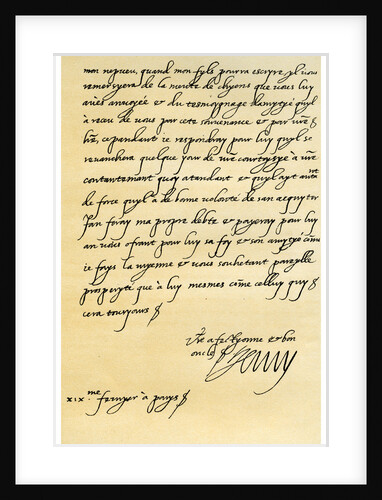 mon nepueu, quand mon fyls pourra escryre yl vous
remersyera de la meute de chyens que vous luy
aues anuoyee et du tesmoygnage damytye quyl
a receu de vous par cete souuenance et par vre
lre, cependant ie respondray pour luy quyl se
reuanchera quelque jour de vre courtoysye a vre
contantemant quoy atandant et quyl ayt autant
de force quyl a de bonne volonte de san aquyter
Jan feray ma propre debte et payeray pour luy
an vous ofrant pour luy sa foy et son amytye come
ie fays la myenne et vous souhetant pareylle
prosperyte que a luy mesmes come celluy quy
sera tousyours
Vre afectyonne et bon
oncle Henry
xix.me a parys